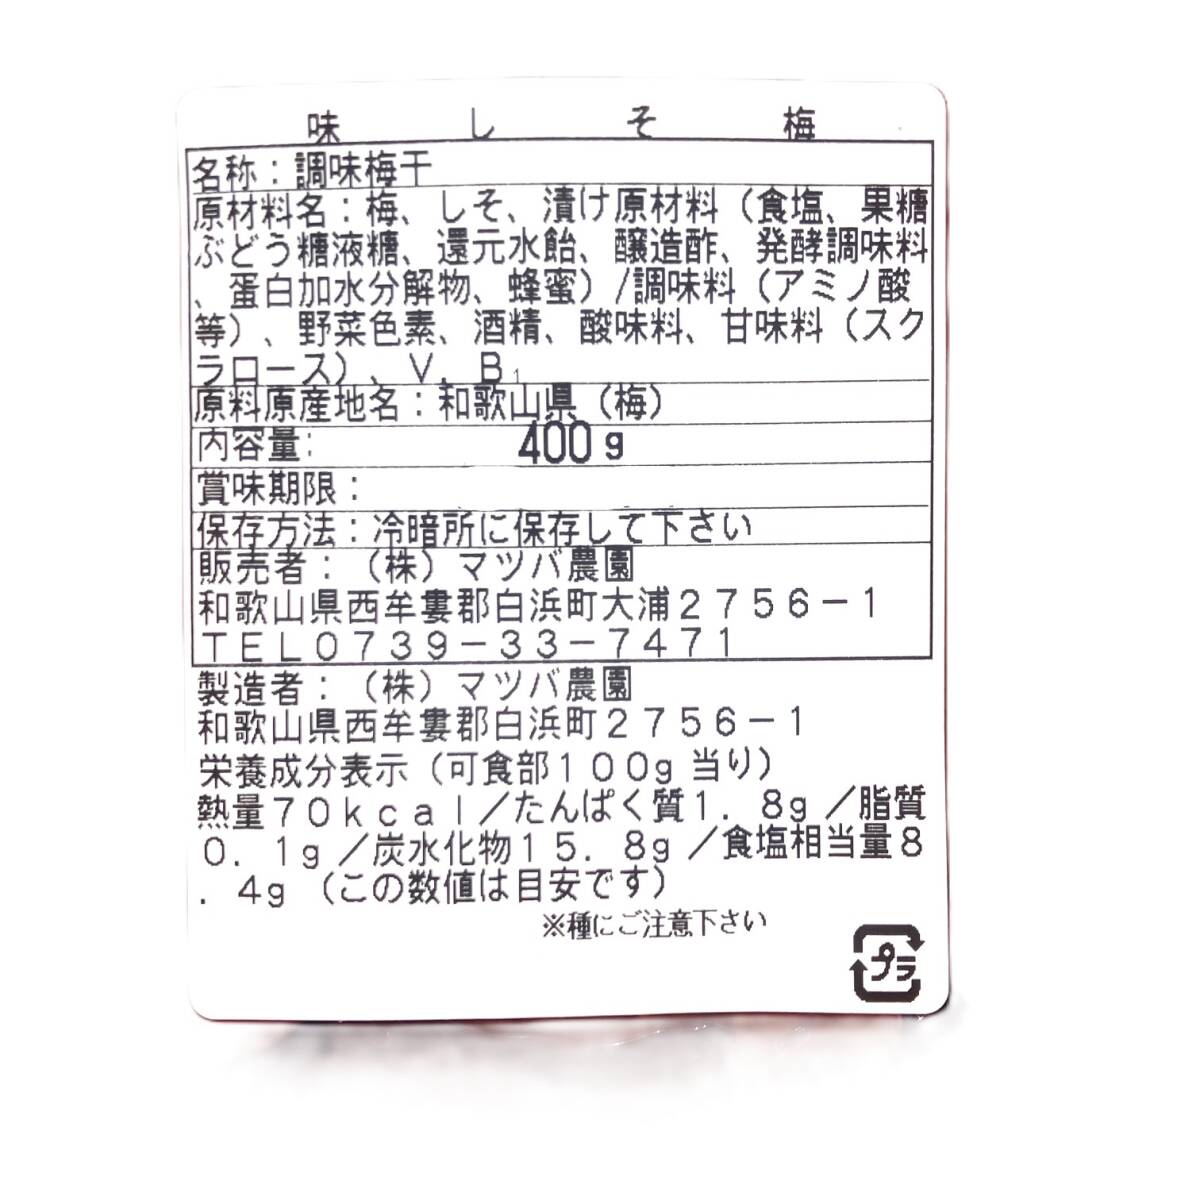 味しそ梅
名称：調味梅干
原材料名：梅、しそ、漬け原材料（食塩、果糖
ぶどう糖液糖、還元水飴、醸造酢、発酵調味料
、蛋白加水分解物、蜂蜜）/調味料（アミノ酸
等）、野菜色素、酒精、酸味料、甘味料（スク
ラロース）、Ｖ．Ｂ₁
原料原産地名：和歌山県（梅）
内容量: 400g
賞味期限：
保存方法：冷暗所に保存して下さい
販売者：（株）マツバ農園
和歌山県西牟婁郡白浜町大浦２７５６－１
ＴＥＬ０７３９－３３－７４７１
製造者：（株）マツバ農園
和歌山県西牟婁郡白浜町２７５６－１
栄養成分表示（可食部１００g 当り）
熱量７０ｋｃａｌ／たんぱく質１．８g／脂質
０．１g／炭水化物１５．８g／食塩相当量８
．４g（この数値は目安です）
※種にご注意下さい
プラ